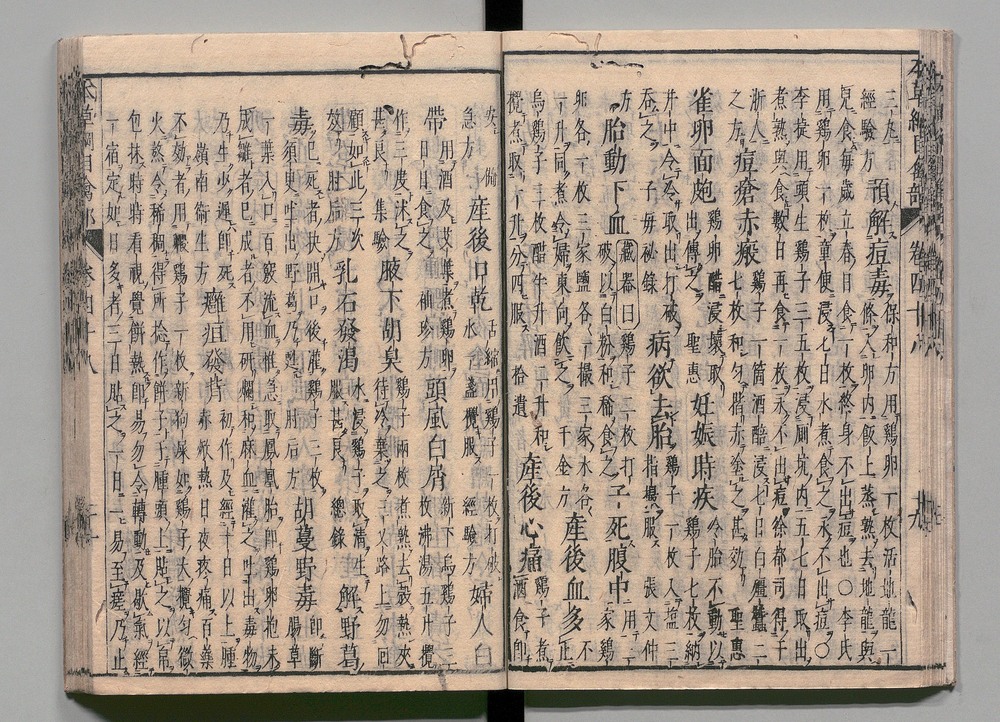 三丸
經驗方 預解痘毒 保和方用雞卵一枚活地龍一
條入卵内飯上蒸熟去地龍與
兒食每歲立春日食一枚終身不出痘也〇李氏
用雞卵一枚童便浸七日水煮食之永不出痘〇
李捷用頭生雞子三五枚浸厠坑内五七日取出
煮熟與食數日再食一枚永不出痘徐都司得于
浙人之方 痘瘡赤瘢 雞子一箇酒醅浸七日白殭蠶二
七枚和勻揩赤塗之甚效 聖惠
雀卵面皰 雞卵醋浸壞取出傅之 聖惠 妊娠時疾 令胎不動以
雞子七枚納
井中令冷取出打破吞之 子母秘錄 病欲去胎 雞子一枚入鹽三
指撮服 張文仲
方 胎動下血 藏器曰雞子二枚打
破以白粉和稀食之 子死腹中 用三
家雞
卵各一枚三家鹽各一撮三家水各
一升同煮令婦東向飲之 千金方 産後血多 不止
烏雞子三枚醋半升酒一升和
攪煮取一升分四服 拾遺 産後心痛 雞子煮
酒食即
安 備急方 産後口乾 舌縮用雞子一枚打破
水盞攪服 經驗方 婦人白
帶 用酒及艾葉煮雞卵
日日食之 袖珍方 頭風白屑 新下烏雞子三
枚沸湯五升攪
作三度沐之
甚良 集驗 腋下胡臭 雞子兩枚煮熟去殼熱夾
待冷棄之三叉路上勿回
顧如此三次
效 肘後方 乳石發渴 水浸雞子取清生
服甚良 總錄 解野葛
毒 已死者抉開口後灌雞子三枚即
須臾吐出野葛乃甦 肘后方 胡蔓野毒 即斷
腸草
一葉入口百竅流血惟急取鳳凰胎即雞卵抱未
成雛者已成者不用研爛和麻油灌之吐出毒物
乃生少遲即死
嶺南衛生方 癰疽發背 初作及經十日以上腫
赤焮熱日夜疼痛百藥
不效者用毈雞子一枚新狗屎如雞子大攪勻微
火熬令稀稠得所作餅子于腫頭上貼之以帛
包抹時時看視覺餅熱即易勿令轉動及歇氣經
一宿定如日多者三日貼之一日一易至瘥乃止